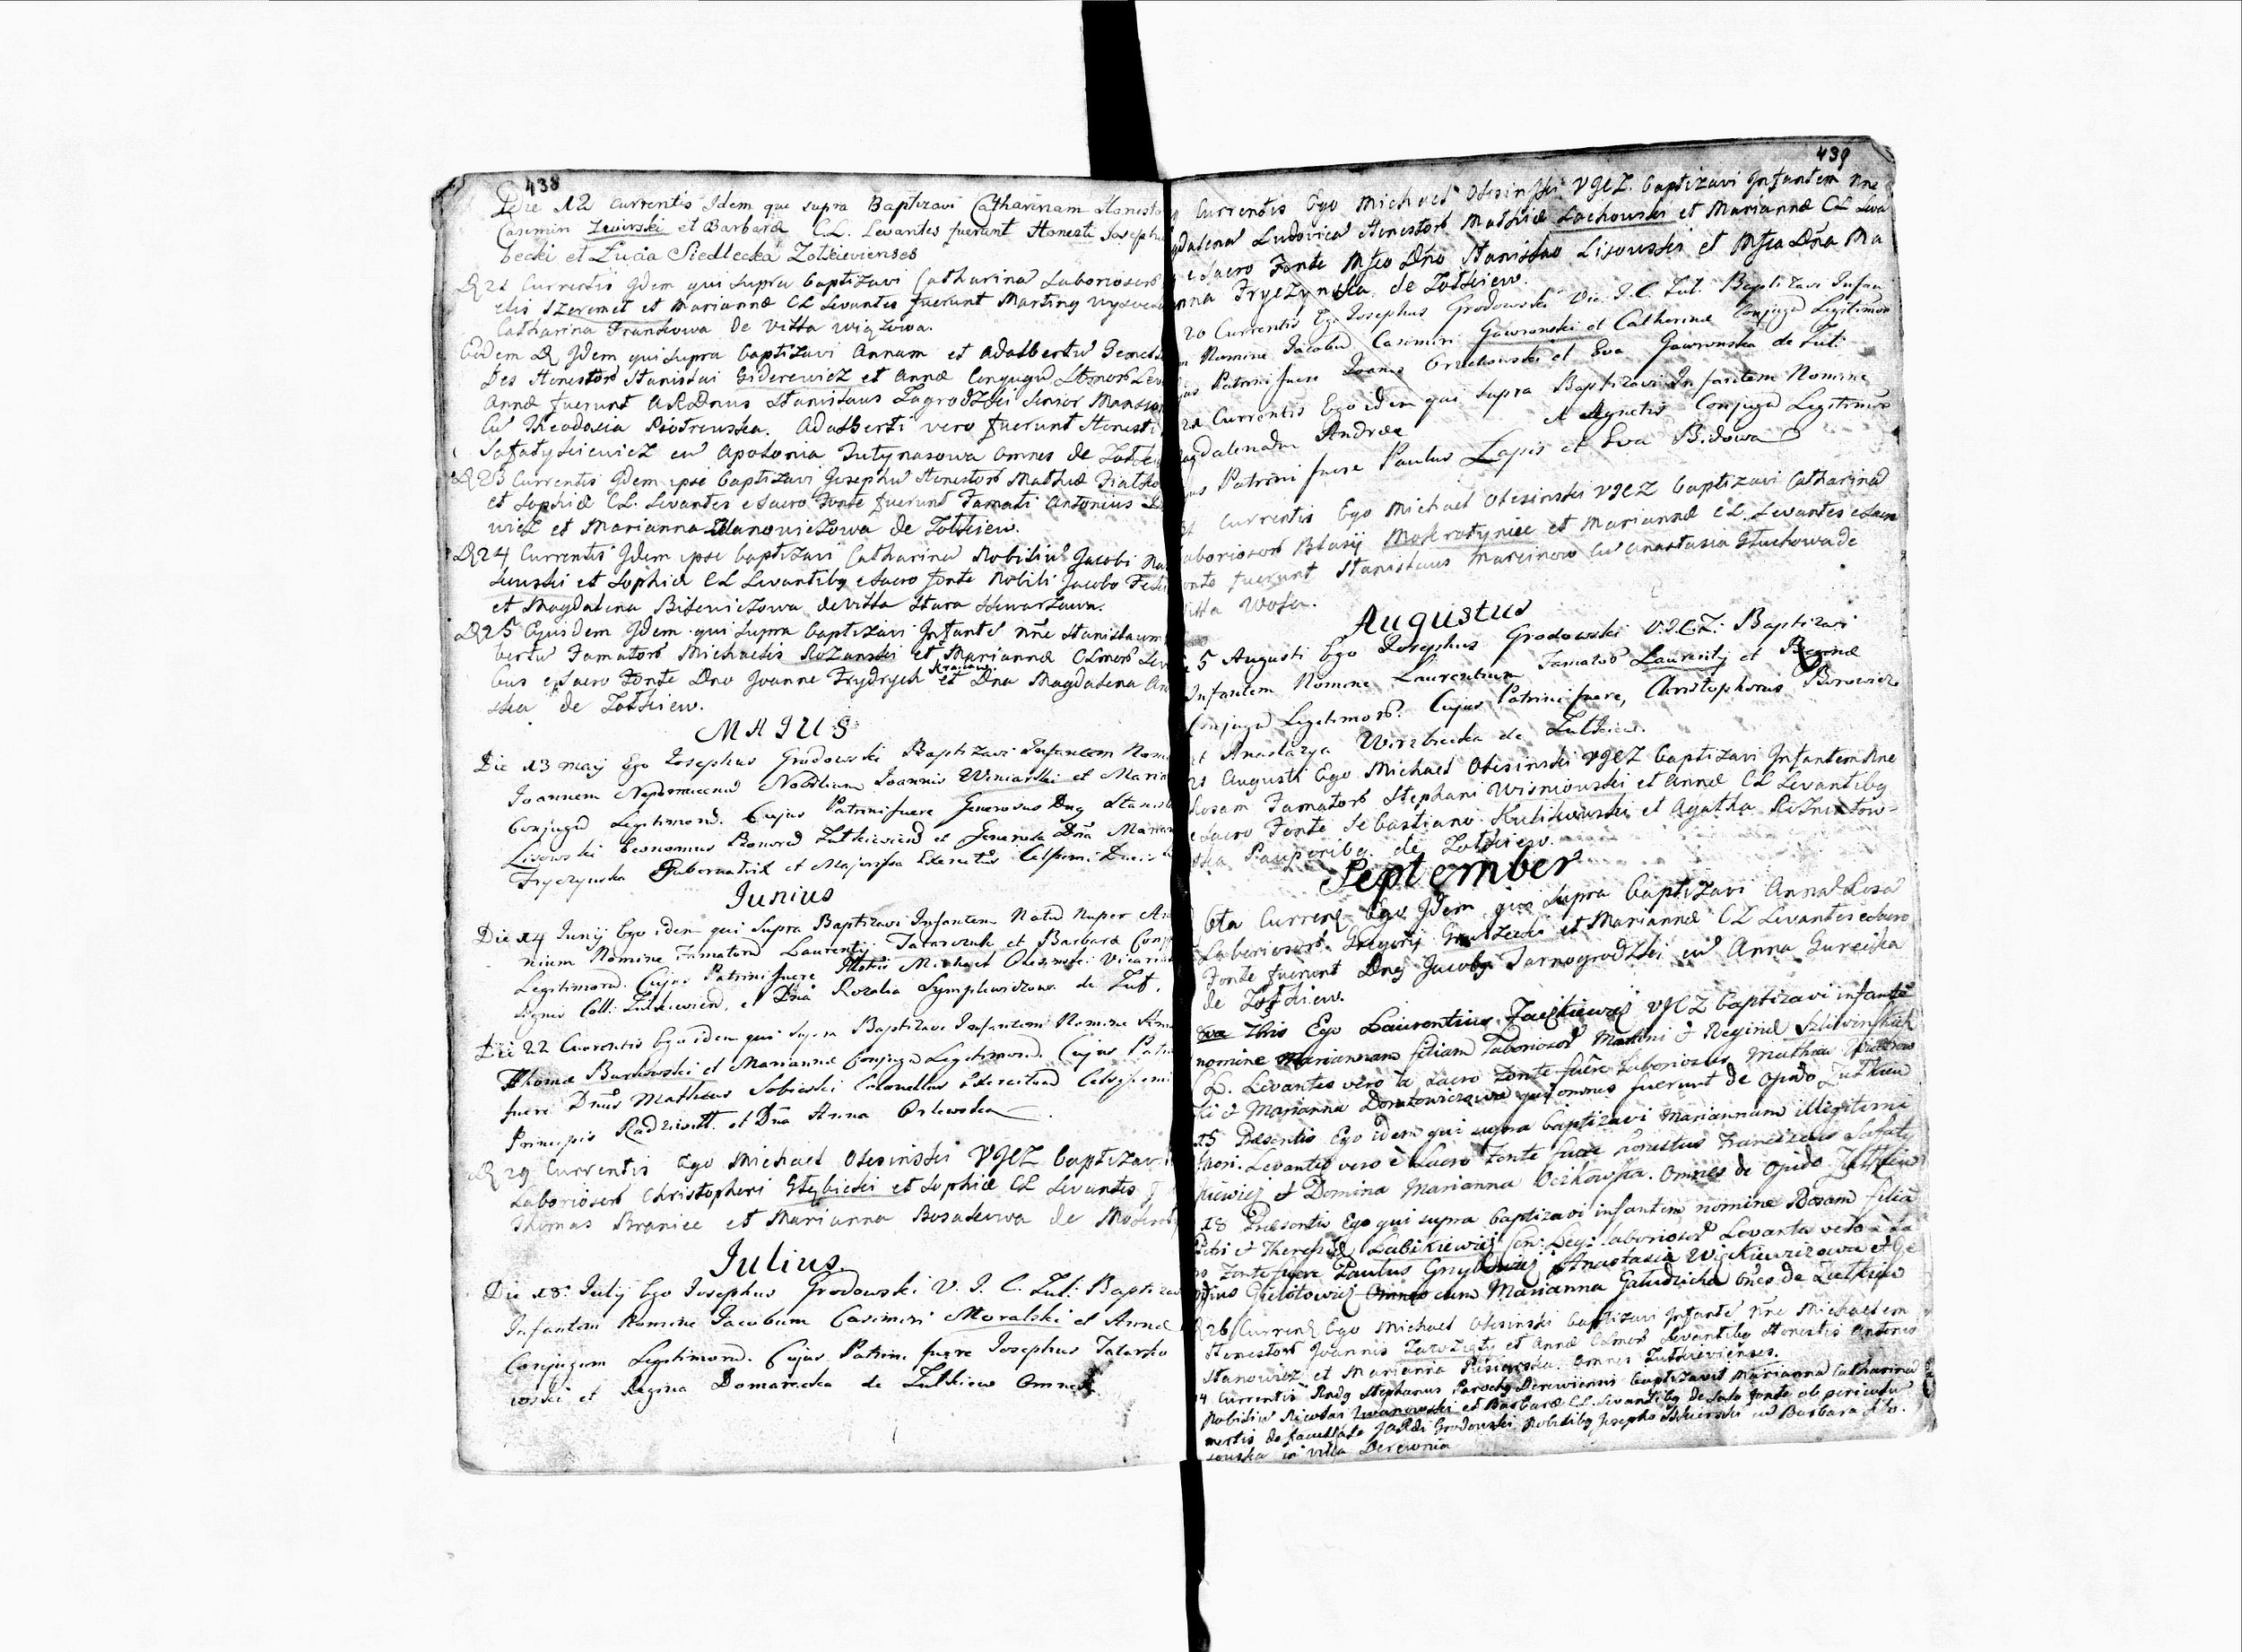 438
Die 12 Currentis Idem qui supra Baptizavi Catharinam Honesto
Casimiri Zewirski et Barbaræ C.L. Levantes fuerunt Honesti Joseph
becki et Lucia Siedlecka Zolkievienses
D 21 Currentis Idem qui supra baptizavi Catharinā Laboriosor
Szeremet et Mariannæ CL Levantes fuerunt Martinus
Catharina Frankowa de Villa Wiązowa.
Eodem D Idem qui supra baptizavi Annam et Adalbertū Gemel
les Honestor Stanislai Giderewicz et Annæ Conjugū Ltmor Lev
Annæ fuerunt ARDnus Stanislaus Zagrodzki Senior Mansion
cū Theodosia Piotrowska. Adalberti vero fuerunt Honesti
Safatykiewicz cū Apolonia Jutynasowa omnes de Zolkie
D 23 Currentis Idem ipse baptizavi Josephū Honestor Mathiæ Fiatko
et Sophiæ CL. Levantes e Sacro Fonte fuerunt Famati Antonius
wicz et Marianna Ulanowiczowa de Zolkiew.
D 24 Currentis Idem ipse baptizavi Catharinā Nobiliū Jacobi Ra
et Sophiæ CL Levantibg e Sacro fonte Nobili Jacobo
et Magdalena Bilewiczowa de Villa Stara Skwarzawa.
D 25 Ejusdem Idem qui supra baptizavi Infantē nne Stanislaum
bertū Famator Michaelis Rozanski et Mariannæ CLmor Lev
bus e Sacro Fonte Dno Joanne Frydrych Krajowi et Dna Magdalena An
ska de Zolkiew.
MAJUS
Die 13 maij Ego Josephus Grodowski Baptizavi Infantem Nom
Joannem Nepomucenū Nobilium Joannis Winiarski et Maria
Conjugū Legitimorū. Cujus Patrini fuere Generosus Dng Stanisl
Lisowski Economus Bonorū Zulkieviens et Generosa Dna Marian
Fryczynska Gubernatrix et Majorissa Exercitus Celssmi Ducis
Junius
Die 14 Junij Ego idem qui supra Baptizavi Infantem Natū Nuper An
nium Nomine Famatorū Laurentij Tatarczuk et Barbaræ Conj
Legitimorū. Cujus Patrini fuere Michael Olesinski Vicarius
Coll: Zulkiewien, et Dna Rozalia Symplewiczowa de Zulk.
Die 22 Currentis Ego idem qui supra Baptizavi Infantem Nomine
Thomæ Burkowski et Mariannæ Conjugū Legitimorū. Cujus Patri
fuere Dnus Mathæus Sobieski Colonellus Exercitus Celssissimi
Principis Radziwill. et Dna Anna Orlewska
D 29 Currentis Ego Michael Olesinski VICZ baptizavi
Laboriosor Christophori Stębicki et Sophiæ CL Levantes
Thomas Braniec et Marianna Bosakowa de Mokrot
Julius
Die 18 Julij Ego Josephus Grodowski V. I. C. Zul: Baptizav
Infantem Nomine Jacobum Casimiri Moralski et Annæ
Conjugum Legitimorū. Cujus Patrini fuere Josephus Tatarko
wski et Regina Domaradzka de Zulkiew Omnes.
439
Currentis Ego Michael Olesinski VICZ. baptizavi Infantem Nne
gdalenā Ludovicā Honestor Mathiæ Lachowski et Mariannæ CL Leva
e Sacro Fonte Mfco Dno Stanislao Lisowski et Mfca Dna Ma
anna Fryczynska de Zolkiew.
20 Currentis Ego Josephus Grodowski Vic. I. C. Zul. Baptizavi Infan
m Nomine Jacobū Casimiri Gawronski et Catharinæ Conjugū Legitimor
jus Patrini fuere Joannes Orzechowski et Eva Gawronska de Zul:
21 Currentis Ego idem qui supra Baptizavi Infantem Nomine
Magdalenam Andreæ et Agnetis Conjugū Legitimor
jus Patrini fuere Paulus Lapis et Eva Bidowa
Currentis Ego Michael Olesinski VICZ baptizavi Catharinā
aboriosor Blasij Mokrotyniec et Mariannæ CL. Levantes e Sacro
onte fuerunt Stanislaus Marcinow cū Anastasia Głuchowa de
Villa Wola.
Augustus
5 Augusti Ego Josephus Grodowski V.I.C.Z: Baptizavi
Infantem Nomine Laurentium Famator Laurentij et Reginæ
Conjugū Legitimor. Cujus Patrini fuere, Christophorus Borowicz
et Anastazya Wirzbicka de Zulkiew.
21 Augusti Ego Michael Olesinski VICZ baptizavi Infantem Nne
Rosam Famator Stephani Wisniowski et Annæ CL Levantibg
e Sacro Fonte Sebastiano Kulikowski et Agatha Roznikow-
ska Pauperibg de Zolkiew.
September
6ta Curren Ego Idem qui supra baptizavi Annā Rosā
Laboriosor Gregorij et Mariannæ CL Levantes e Sacro
Fonte fuerunt Dng Jacobg Tarnogrodzki cū Anna Gurecika
de Zolkiew.
7bris Ego Laurentius VICZ baptizavi infantē
nomine Mariannam filiam laboriosor Martini & Reginæ
CL. Levantes vero à Sacro Fonte fuere laboriosus Mathias
ki & Marianna omnes fuerunt de Opido Zulkiew
15 Præsentis Ego idem qui supra baptizavi Mariannam illegitimi
thori. Levantes vero è Sacro Fonte fuere honestus Franciscus Safaty
kiewicz & Domina Marianna Ocikowska. Omnes de Opido Zulkiew
18 Præsentis Ego qui supra baptizavi infantem nomine Rosam filiā
Petri & Theresiæ Labikiewicz Con: Leg: laboriosor Levantes vero è Sa
ro Fonte fuere Paulus Grzybowicz Anastasia Wickiewiczowa et
cum Marianna Galudzicka Omes de Zulkiew
D 26 Curren Ego Michael Olesinski baptizavi Infantē Nne Michaelem
Honestor Joannis et Annæ CLmor Levantibg Honestis Antonio
Stanowicz et Marianna Pisiewska. Omnes Zulkievienses.
4 Currentis Rndg Stephanus Parochg Derewiensis baptizavit Mariannā Catharinā
Nobiliū Nicolai Iwanowski et Barbaræ CL. Levantibg de Sacro fonte ob periculū
mortis de facultate Grodowski Nobilibg Josepho Skierski cū Barbara
sowska in villa Derewnia